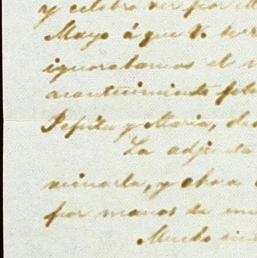 y celebro ver por
Mayo á que V.
ignorabamos el
acontecimiento
Pepita y Maria,
La adjunta
y ahora
por manos de
Mucho